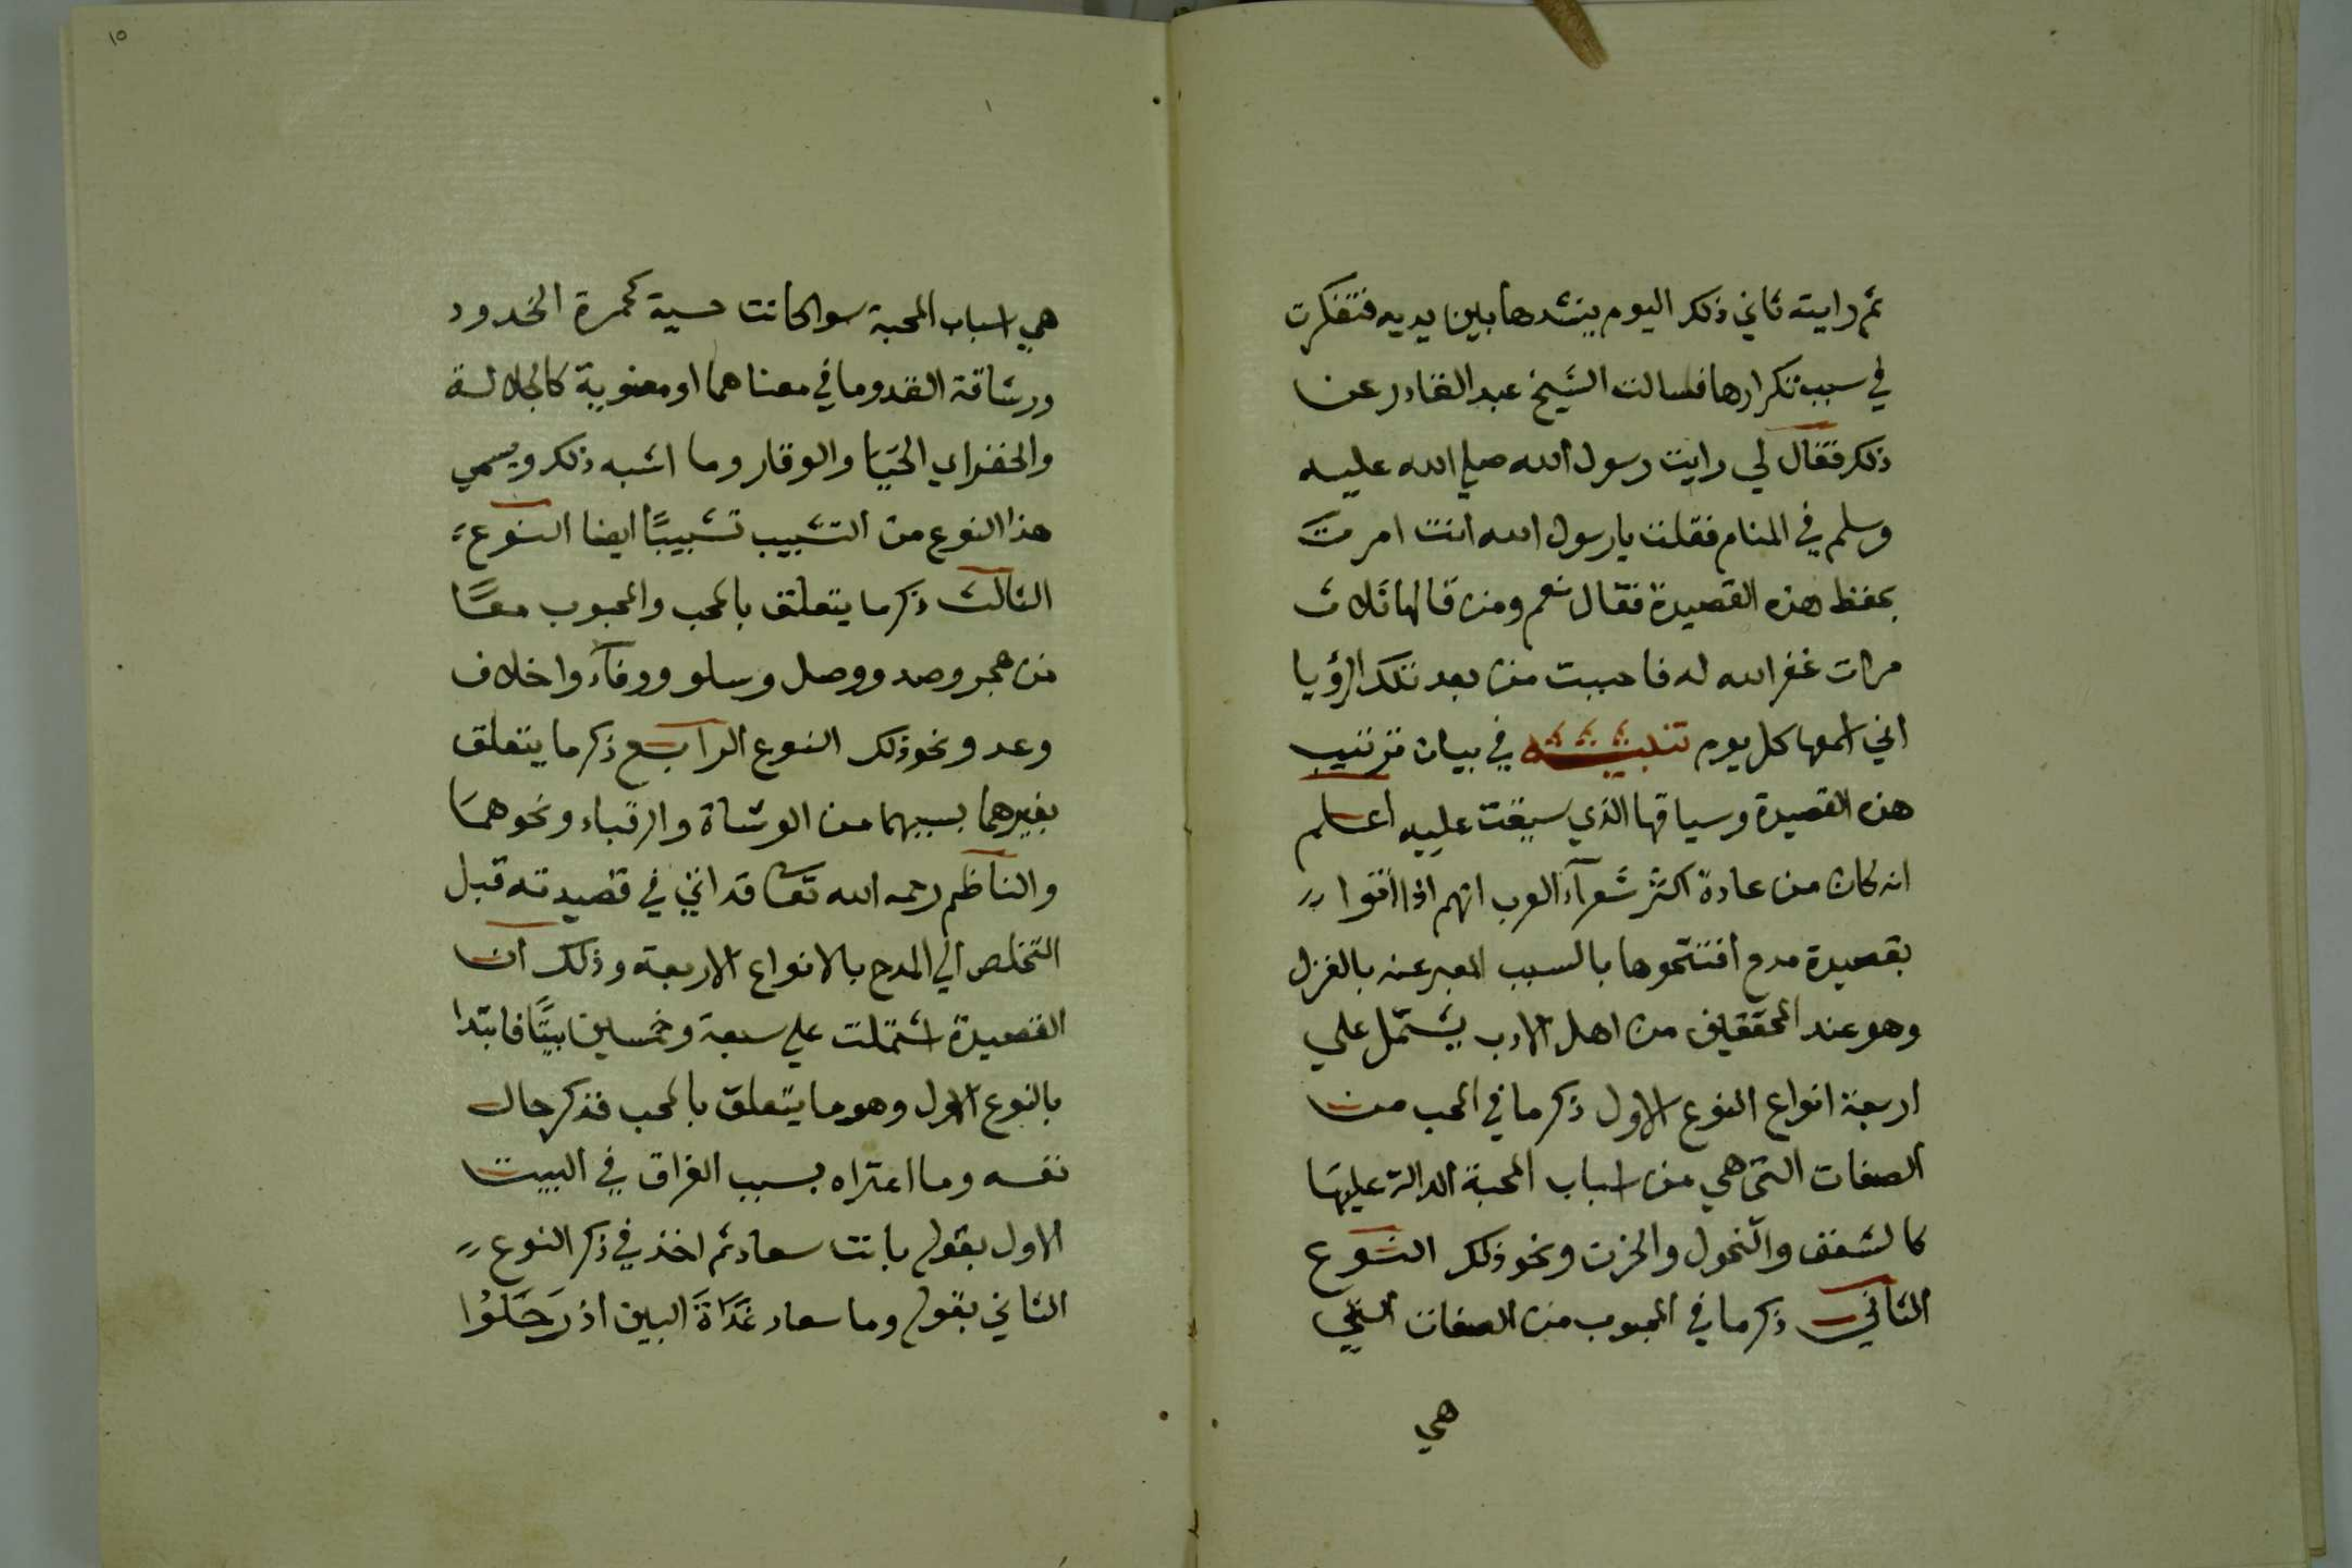 ثم رايته ثاني ذلك اليوم ينشدها بين يديه فتفكرت
في سبب تكرارها فسالت الشيخ عبد القادر عن
ذلك فقال لي رايت رسول الله صلي الله عليه
وسلم في المنام فقلت يا رسول الله انت امرت
بحفظ هذه القصيدة فقال نعم ومن قالها ثلاث
مرات غفر الله له فاحببت من بعد تلك الرؤيا
اني اسمعها كل يوم تنبيه في بيان ترتيب
هذه القصيدة وسياقها الذي سيقت عليه اعلم
انه كان من عادة اكثر شعرآء العرب انهم اذا اتوا
بقصيدة مدح افتتحوها بالسبب المعبر عنه بالغزل
وهو عند المحققين من اهل الادب يشتمل علي
اربعة انواع النوع الاول ذكر ما في المحب من
الصفات التي هي من اسباب المحبة الدالة عليها
كالشغف والنحول والحزن ونحو ذلك النوع
الثاني ذكر ما في المحبوب من الصفات التي
هي
١٥
هي اسباب المحبة سوا كانت حسية كحمرة الخدود
ورشاقة القد وما في معناهما او معنوية كالجلالة
والخفر اي الحيا والوقار وما اشبه ذلك ويسمي
هذا النوع من التشبيب تشبيبًا ايضا النوع
الثالث ذكر ما يتعلق بالمحب والمحبوب معًا
من هجر وصد ووصل وسلو ووفآء واخلاف
وعد ونحو ذلك النوع الرابع ذكر ما يتعلق
بغيرهما بسببهما من الوشاة والرقباء ونحوهما
والناظم رحمه الله تعا قد اتي في قصيدته قبل
التخلص الي المدح بالانواع الاربعة وذلك ان
القصيدة اشتملت علي سبعة وخمسين بيتًا فابتدا
بالنوع الاول وهو ما يتعلق بالمحب فذكر حال
نفسه وما اعتراه بسبب الفراق في البيت
الاول بقوله بانت سعاد ثم اخذ في ذكر النوع
الثاني بقوله وما سعاد غَدَاةَ البين اذ رَحَلُوْا